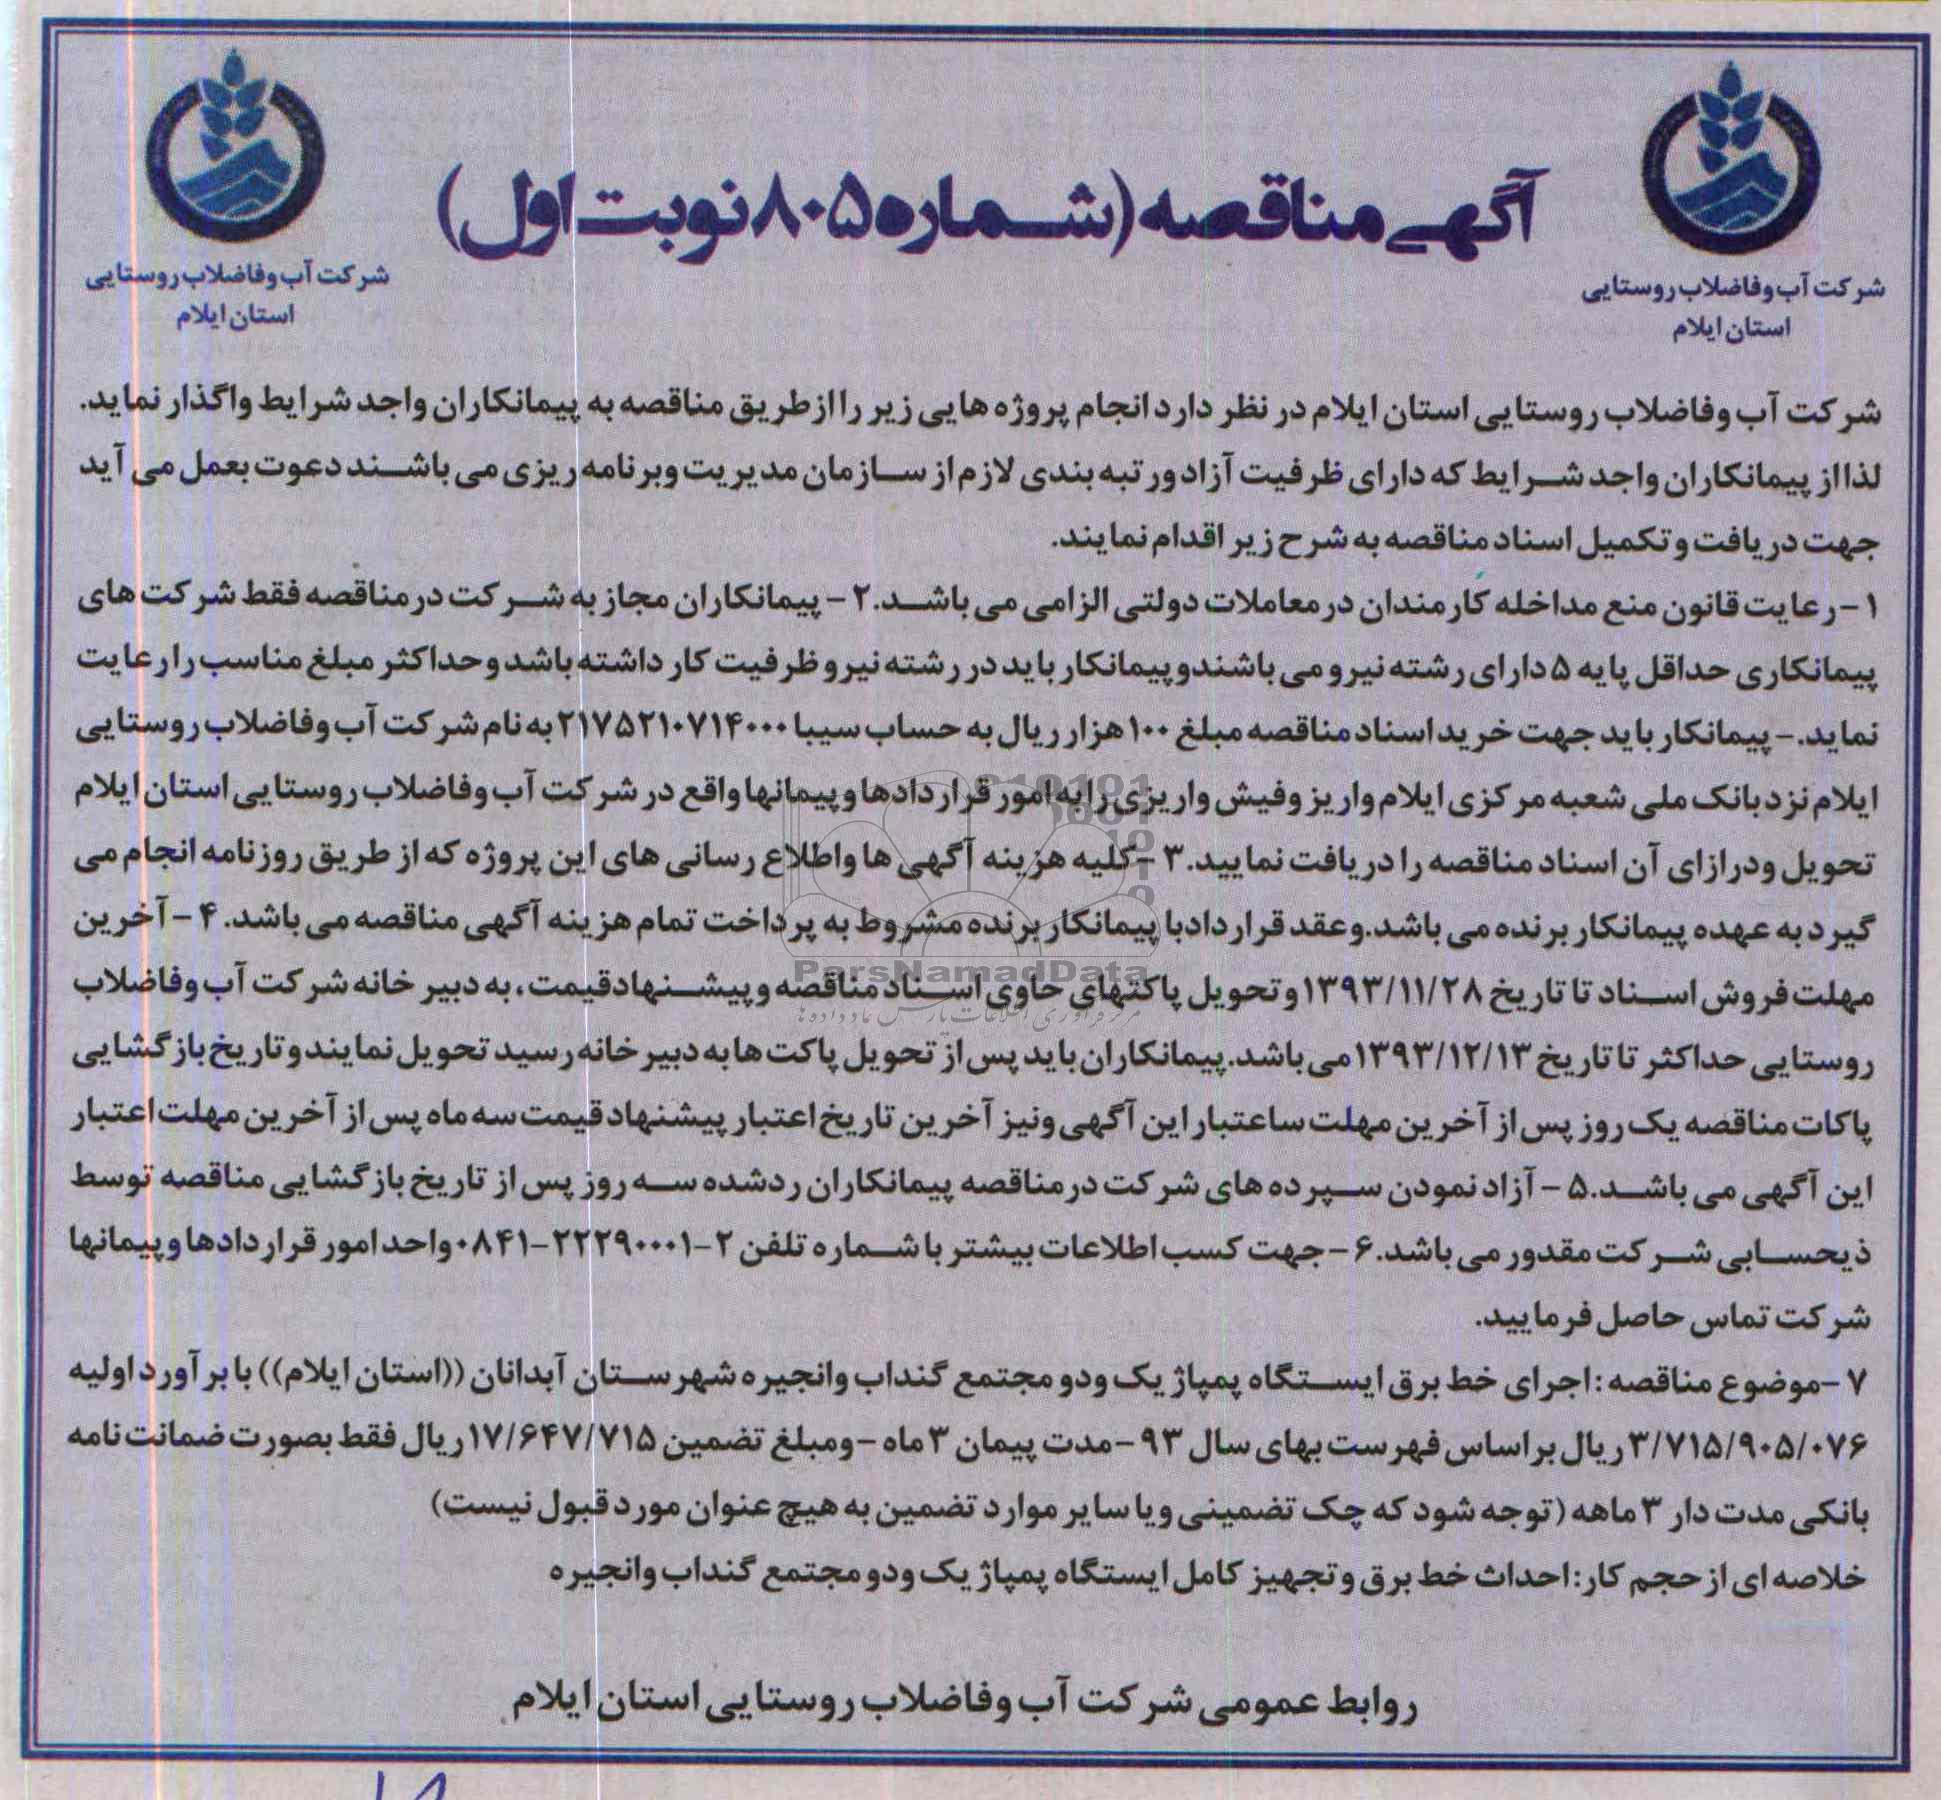 آگهی مناقصه (شماره ۸۰۵ نوبت اول)
شرکت آب وفاضلاب روستایی
استان ایلام
شرکت آب وفاضلاب روستایی
استان ایلام
شرکت آب وفاضلاب روستایی استان ایلام در نظر دارد انجام پروژه هایی زیر را از طریق مناقصه به پیمانکاران واجد شرایط واگذار نماید.
لذا از پیمانکاران واجد شرایط که دارای ظرفیت آزاد ورتبه بندی لازم از سازمان مدیریت وبرنامه ریزی می باشند دعوت بعمل می آید
جهت دریافت و تکمیل اسناد مناقصه به شرح زیر اقدام نمایند.
۱-رعایت قانون منع مداخله کارمندان درمعاملات دولتی الزامی می باشد.۲- پیمانکاران مجاز به شرکت درمناقصه فقط شرکت های
پیمانکاری حداقل پایه ۵ دارای رشته نیرو می باشندوپیمانکار باید در رشته نیرو ظرفیت کار داشته باشد وحداکثر مبلغ مناسب را رعایت
نماید.- پیمانکار باید جهت خرید اسناد مناقصه مبلغ ۱۰۰ هزار ریال به حساب سیبا ۲۱۷۵۲۱۰۷۱۴۰۰۰ به نام شرکت آب وفاضلاب روستایی
ایلام نزد بانک ملی شعبه مرکزی ایلام واریز وفیش واریزی رابه امور قراردادها وپیمانها واقع در شرکت آب وفاضلاب روستایی استان ایلام
تحویل ودرازای آن اسناد مناقصه را دریافت نمایید.۳-کلیه هزینه آگهی ها واطلاع رسانی های این پروژه که از طریق روزنامه انجام می
گیرد به عهده پیمانکار برنده می باشد.وعقد قراردادبا پیمانکار برنده مشروط به پرداخت تمام هزینه آگهی مناقصه می باشد. ۴-آخرین
مهلت فروش اسناد تا تاریخ ۱۳۹۳/۱۱/۲۸ و تحویل پاکتهای حاوی اسناد مناقصه و پیشنهادقیمت ، به دبیر خانه شرکت آب وفاضلاب
روستایی حداکثر تا تاریخ ۱۳۹۳/۱۲/۱۳می باشد.پیمانکاران باید پس از تحویل پاکت ها به دبیر خانه رسید تحویل نمایند و تاریخ بازگشایی
پاکات مناقصه یک روز پس از آخرین مهلت ساعتبار این آگهی ونیز آخرین تاریخ اعتبار پیشنهاد قیمت سه ماه پس از آخرین مهلت اعتبار
این آگهی می باشد.۵- آزاد نمودن سپرده های شرکت درمناقصه پیمانکاران ردشده سه روز پس از تاریخ بازگشایی مناقصه توسط
ذیحسابی شرکت مقدور می باشد.۶-جهت کسب اطلاعات بیشتر با شماره تلفن ۲-۲۲۲۹۰۰۰۱-۰۸۴۱ واحد امور قراردادها وپیمانها
شرکت تماس حاصل فرمایید.
۷-موضوع مناقصه : اجرای خط برق ایستگاه پمپاژ یک ودو مجتمع گنداب وانجیره شهرستان آبدانان ((استان ایلام)) با برآورد اولیه
۳/۷۱۵/۹۰۵/۰۷۶ ریال براساس فهرست بهای سال ۹۳-مدت پیمان ۳ ماه -ومبلغ تضمین ۱۷/۶۴۷/۷۱۵ ریال فقط بصورت ضمانت نامه
بانکی مدت دار ۳ ماهه (توجه شود که چک تضمینی ویا سایر موارد تضمین به هیچ عنوان مورد قبول نیست)
خلاصه ای از حجم کار: احداث خط برق و تجهیز کامل ایستگاه پمپاژ یک ودو مجتمع گنداب وانجیره
روابط عمومی شرکت آب وفاضلاب روستایی استان ایلام
ParsNamadData
مرکز فرآوری اطلاعات پارس نماد داده ها